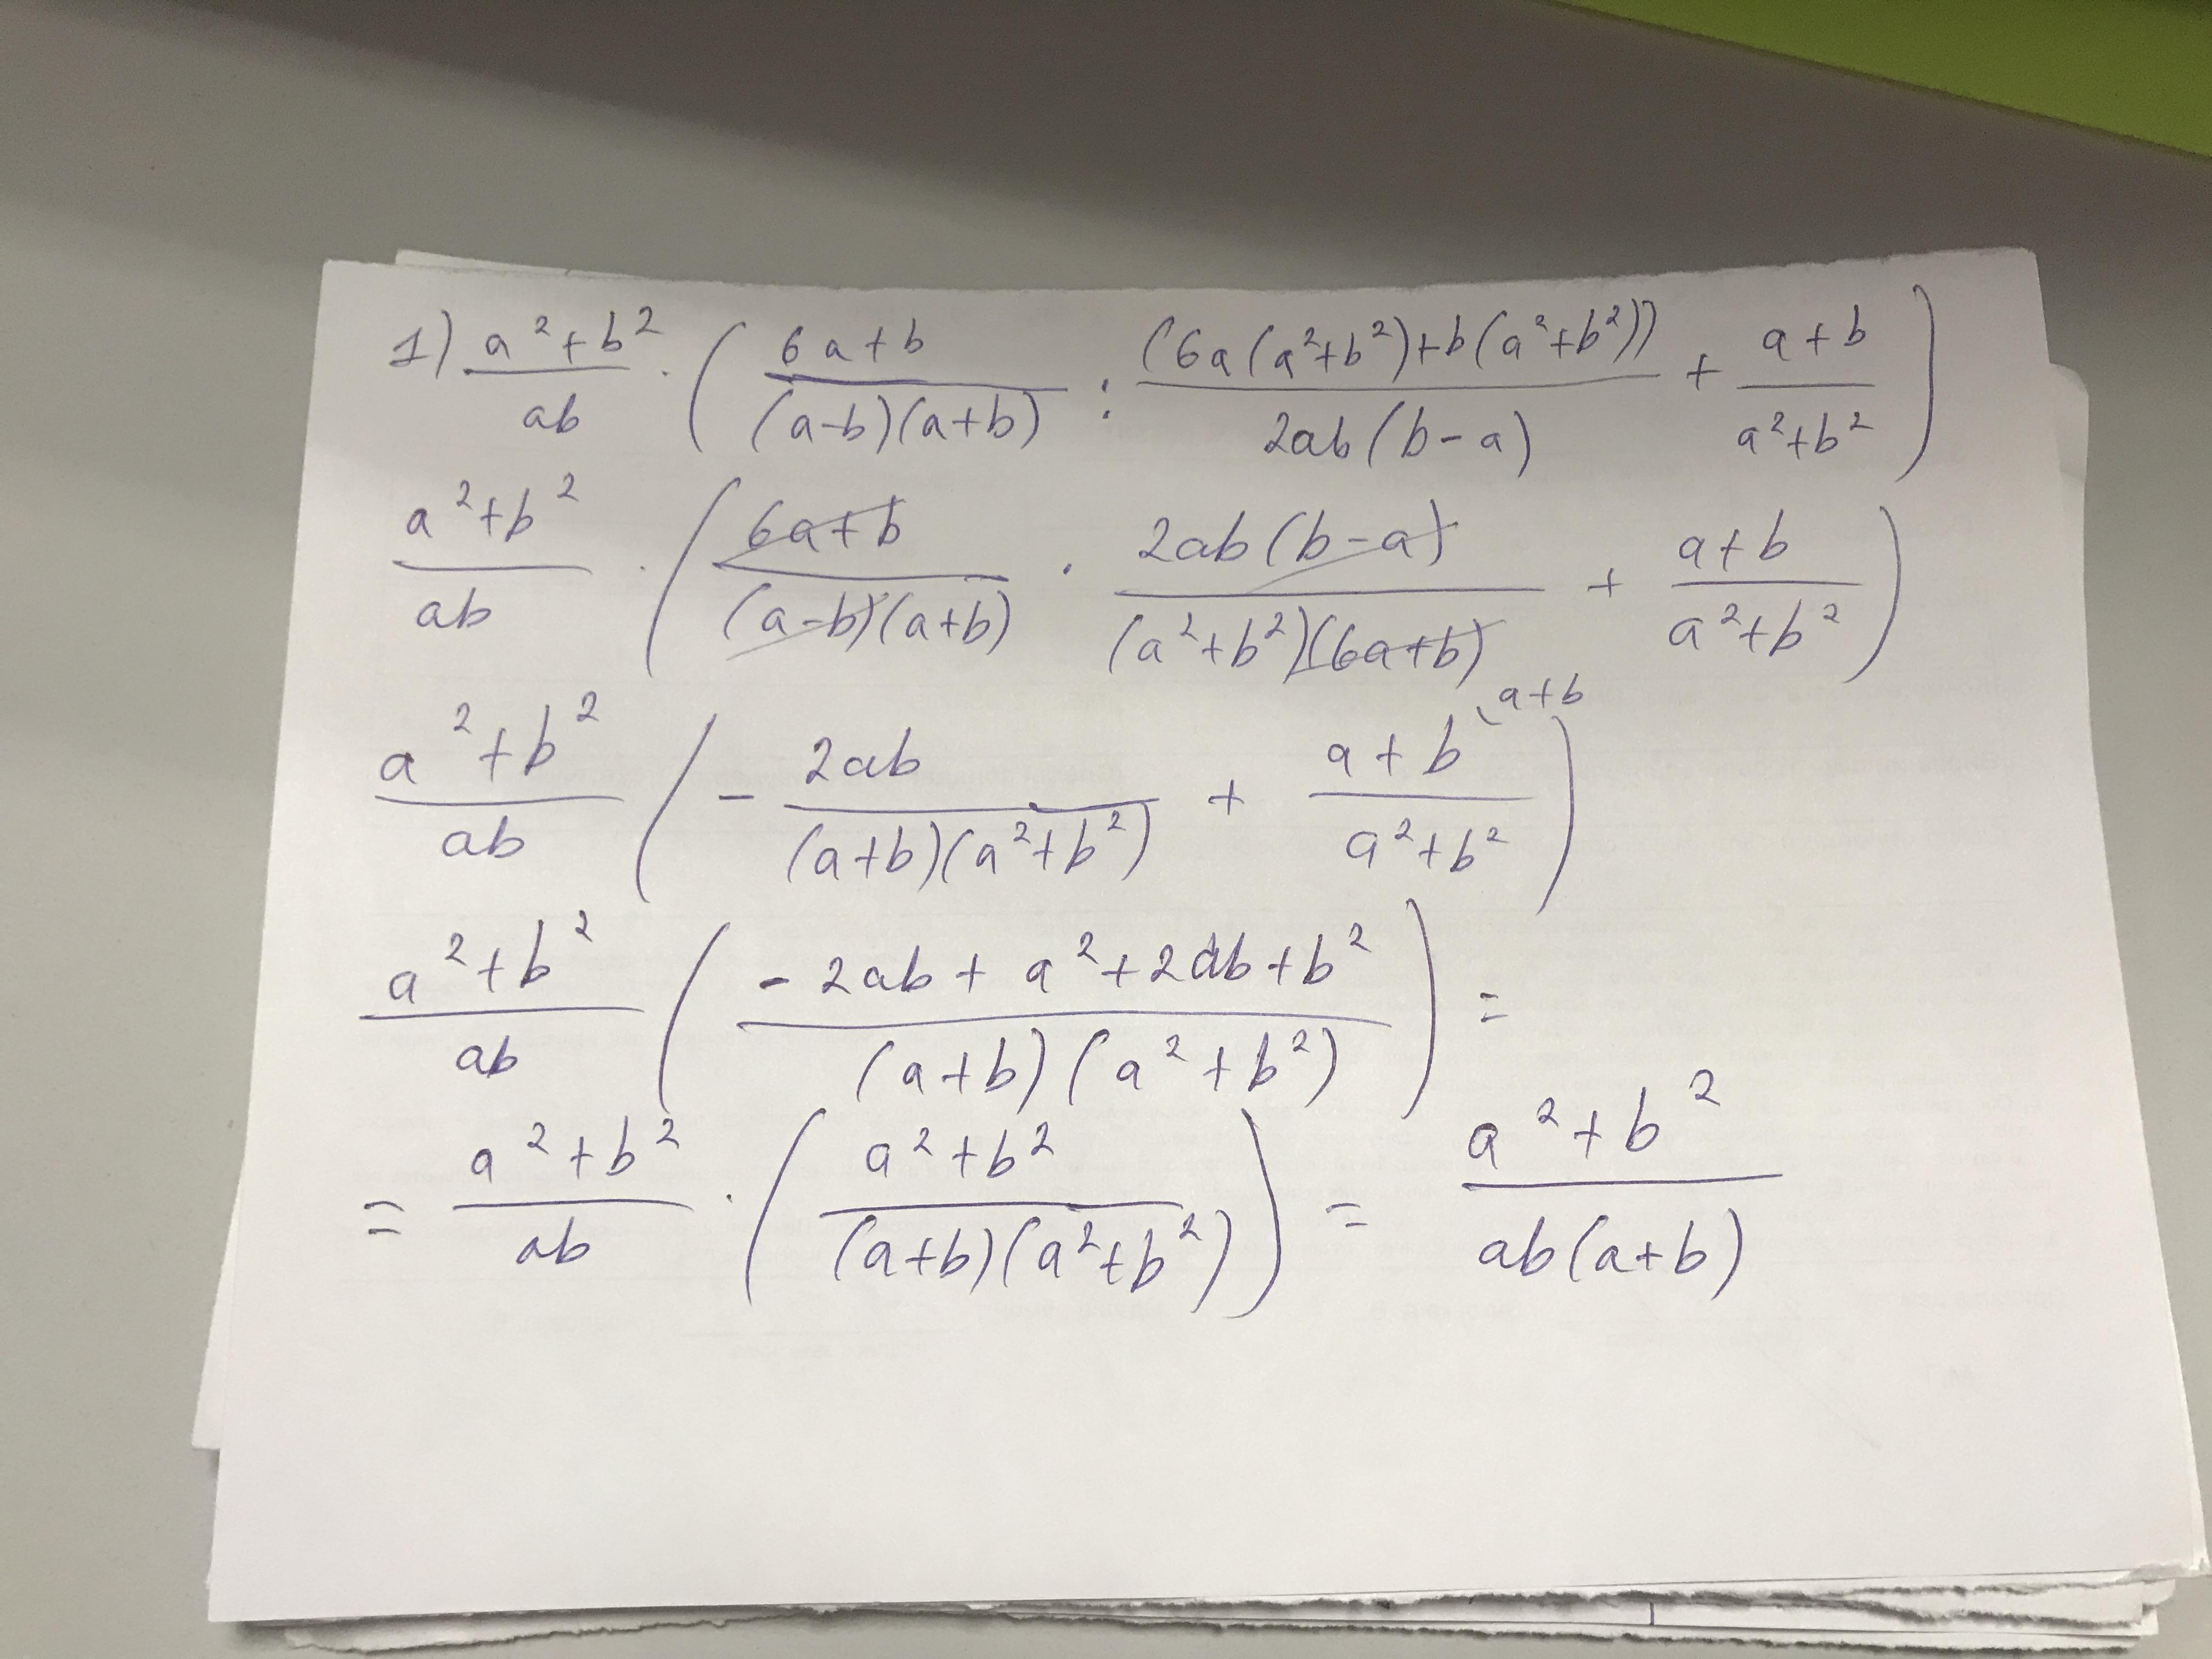 1) (a²+b²)/(ab) · ( (6a+b)/((a-b)(a+b)) : (6a(a²+b²)+b(a²+b²))/(2ab(b-a)) + (a+b)/(a²+b²) )
(a²+b²)/(ab) · ( (6a+b)/((a-b)(a+b)) · (2ab(b-a))/((a²+b²)(6a+b)) + (a+b)/(a²+b²) )
(a²+b²)/(ab) ( - (2ab)/((a+b)(a²+b²)) + (a+b)/(a²+b²) ) \a+b
(a²+b²)/(ab) ( (-2ab+a²+2ab+b²)/((a+b)(a²+b²)) ) =
= (a²+b²)/(ab) · ( (a²+b²)/((a+b)(a²+b²)) ) = (a²+b²)/(ab(a+b))